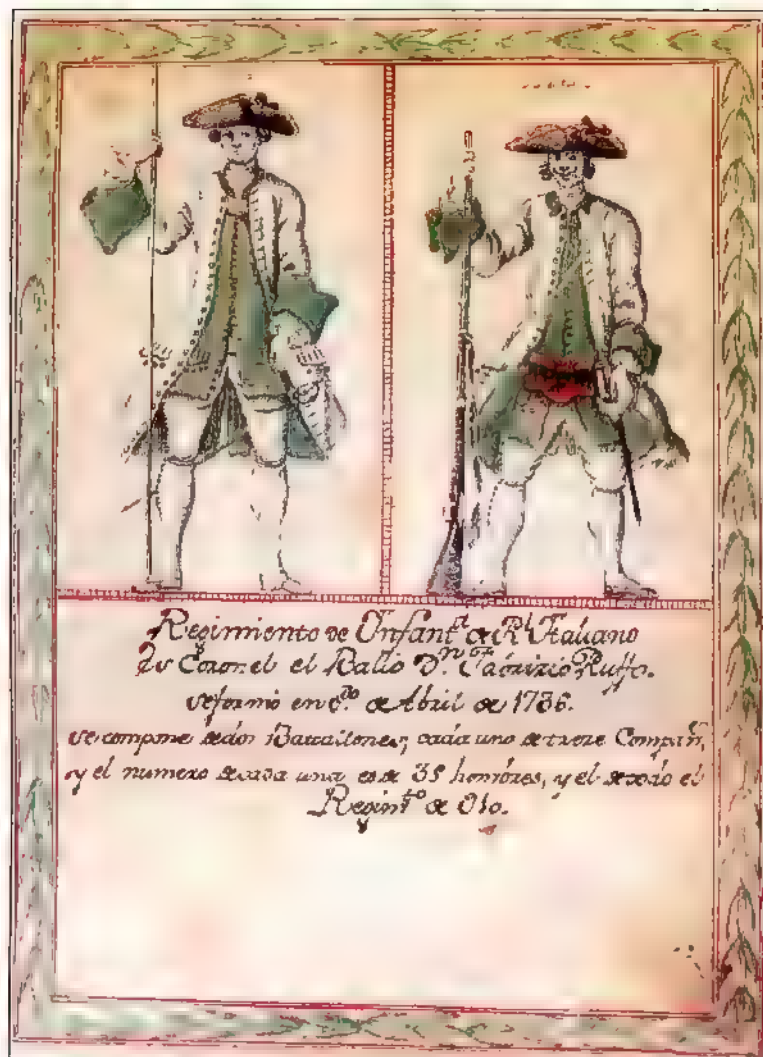 Regimiento de Ynfant.ª de R.l Ytaliano
Su Coronel el Bailio D.n Fabrizio Ruffo.
Se formó en de Abril de 1736.
Se compone de dos Battallones, cada uno de treze Compañ.s,
y el numero de cada una es de 35 hombres, y el de todo el
Regim.to de 910.